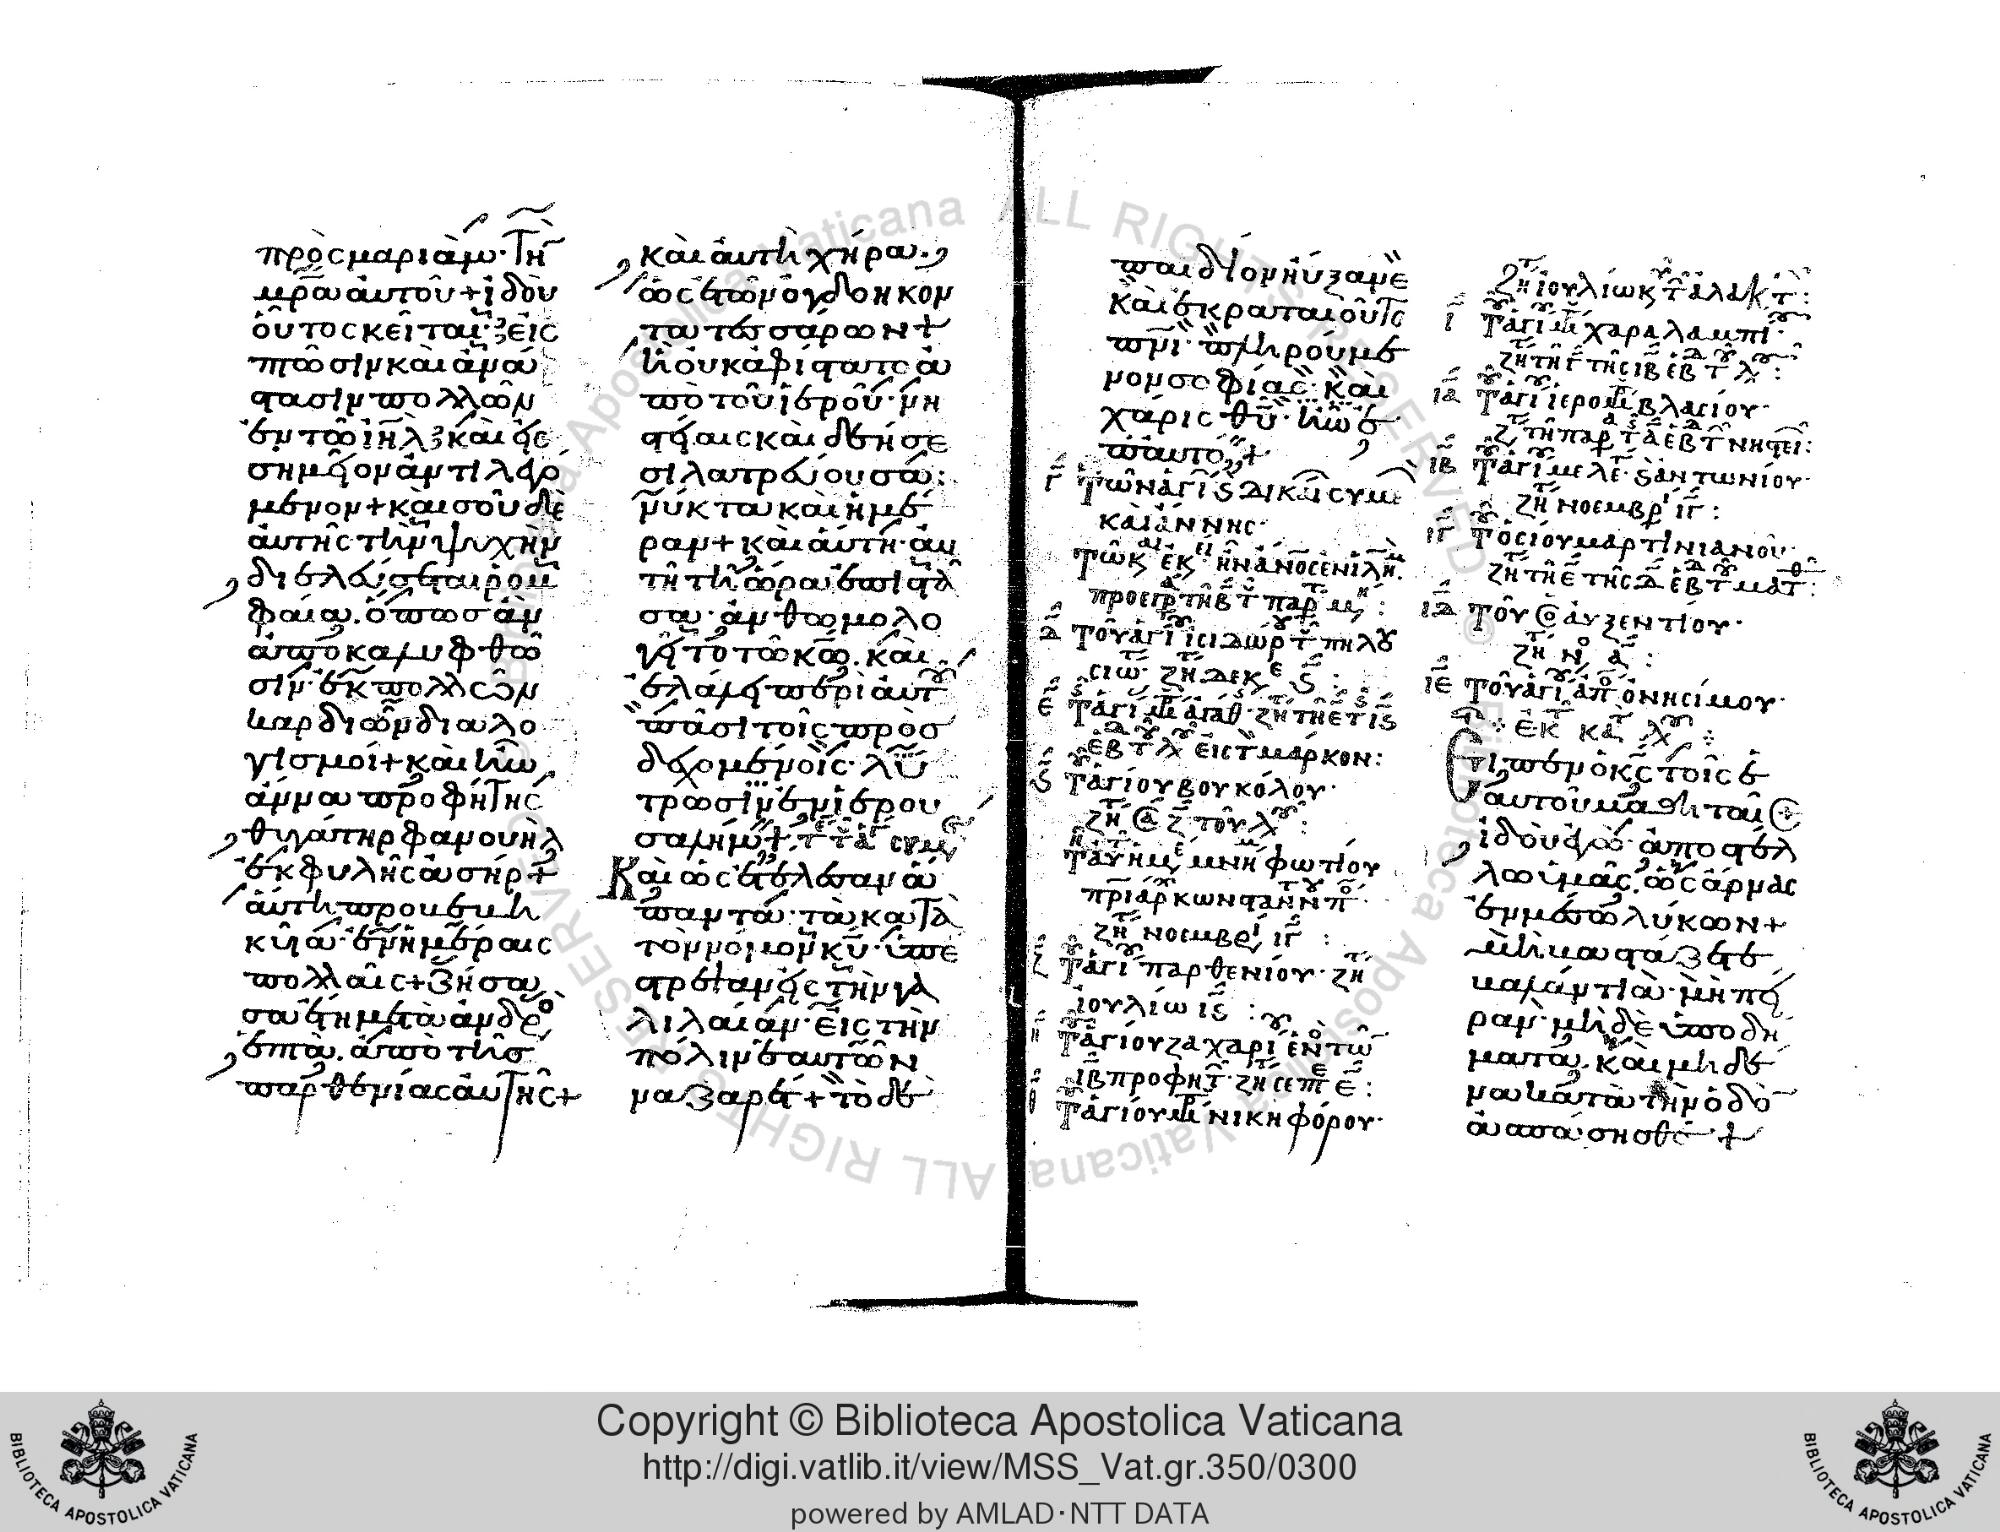 πρὸς μαριὰμ· τὴν
μρ̅α αὐτοῦ + ἰδοὺ
οὗτος κεῖται· εἰς
πτῶσιν καὶ ἀνά
στασιν πολλῶν
ἐν τῶ ἰη̅λ· καὶ εἰς
σημεῖον ἀντιλεγό
μενον + καὶ σοῦ δὲ
αὐτῆς τὴν ψυχὴν
διελεύσεται ρομ
φαία. ὅπως ἂν
ἀποκαλυφθῶ
σιν· ἐκ πολλῶν
καρδιῶν διαλο
γισμοί + καὶ ἦν
ἄννα προφῆτις
θυγάτηρ φανουὴλ
ἐκ φυλῆς ἀσήρ +
αὕτη προβεβη
κυῖα· ἐν ἡμέραις
πολλαῖς + ζήσα
σα ἔτη μετὰ ἀνδρὸς
ἑπτὰ. ἀπὸ τῆς
παρθενίας αὐτῆς +
καὶ αὐτὴ χήρα.
ὡς ἐτῶν ὀγδοήκον
τα τεσσάρων +
ἣ οὐκ ἀφίστατο ἀ
πὸ τοῦ ἱεροῦ· νη
στείαις καὶ δεήσε
σι λατρεύουσα:
νύκτα καὶ ἡμέ
ραν + καὶ αὕτη· αὐ
τῆ τῆ ὥρα ἐπιστᾶ
σα· ἀνθωμολο
γεῖτο τῶ κω̅. καὶ
ἐλάλει περὶ αὐτοῦ
πᾶσι τοῖς προσ
δεχομένοις· λύ
τρωσιν ἐν ἱερου
σαλήμ +
Καὶ ὡς ἐτέλεσαν ἅ
παντα· τὰ κατὰ
τὸν νόμον κυ̅· ὑπέ
στρεψαν εἰς τὴν γα
λιλαίαν· εἰς τὴν
πόλιν ἑαυτῶν
ναζαρέτ + τὸ δὲ
παιδίον ηὔξανε
καὶ ἐκραταιοῦτο
πνι· πληρούμε
νον σοφίας· καὶ
χάρις θυ̅· ἦν ἐ
π αὐτό +
γ̅ Τῶν ἁγί ς δικαί συμε
καὶ ἄννης·
προειρ τῆ β τ παρ
δ̅ Τοῦ ἁγί ἰσιδώρ τ πηλου
σιώτ ζη δεκε ς̅ :
ε̅ Τ ἁγί μρ ἀγαθ· ζη τῆ ε τ ις
ἑβ τ λ εἰς τ μάρκον:
ς̅ Τ ἁγίου βουκόλου·
ζη σα ζ τοῦ λ :
Τ αὐ ἡμ μνη φωτίου
πριάρ κωνσταν π
ζη νοεμβρ ιγ :
ζ̅ Τ ἁγί παρθενίου· ζη
ἰουλίω ις :
η̅ Τ ἁγίου ζαχαρί ἐν τῶ
ιβ προφητ· ζη σεπτε ε̅ :
θ̅ Τ ἁγίου μρ νικηφόρου·
ζη ἰουλίω κ τ ἀλακτ :
ι̅ Τ ἁγί μρ χαραλαμπί
ζη τῆ γ τῆς ιβ ἑβ τ λ :
ια̅ Τ ἁγί ἱερομρ βλασίου·
ζη τῆ παρ τ α ἑβ τ νηστεί:
ιβ̅ Τ ἁγί μελετ· ς ἀντωνίου·
ζη νοεμβρ ιγ :
ιγ̅ Τ ὁσίου μαρτινιανοῦ·
ζη τῆ ε τῆς δ ἑβ τ ματθ :
ιδ̅ Τοῦ ὁσ αὐξεντίου·
ζη νο α :
ιε̅ Τοῦ ἁγί ἀπο ὀνησίμου·
ἐκ τ κατ λ :
Εἶπεν ὁ κς̅ τοῖς ἑ
αυτοῦ μαθηταῖς
ἰδοὺ ἐγὼ· ἀποστέλ
λω ὑμᾶς, ὡς ἄρνας
ἐν μέσω λύκων +
μὴ βαστάζετε
βαλάντιον· μὴ πή
ραν· μὴ δὲ ὑποδή
ματα. καὶ μηδέ
να κατὰ τὴν ὁδὸν
ἀσπάσησθε +
Copyright © Biblioteca Apostolica Vaticana
http://digi.vatlib.it/view/MSS_Vat.gr.350/0300
powered by AMLAD·NTT DATA